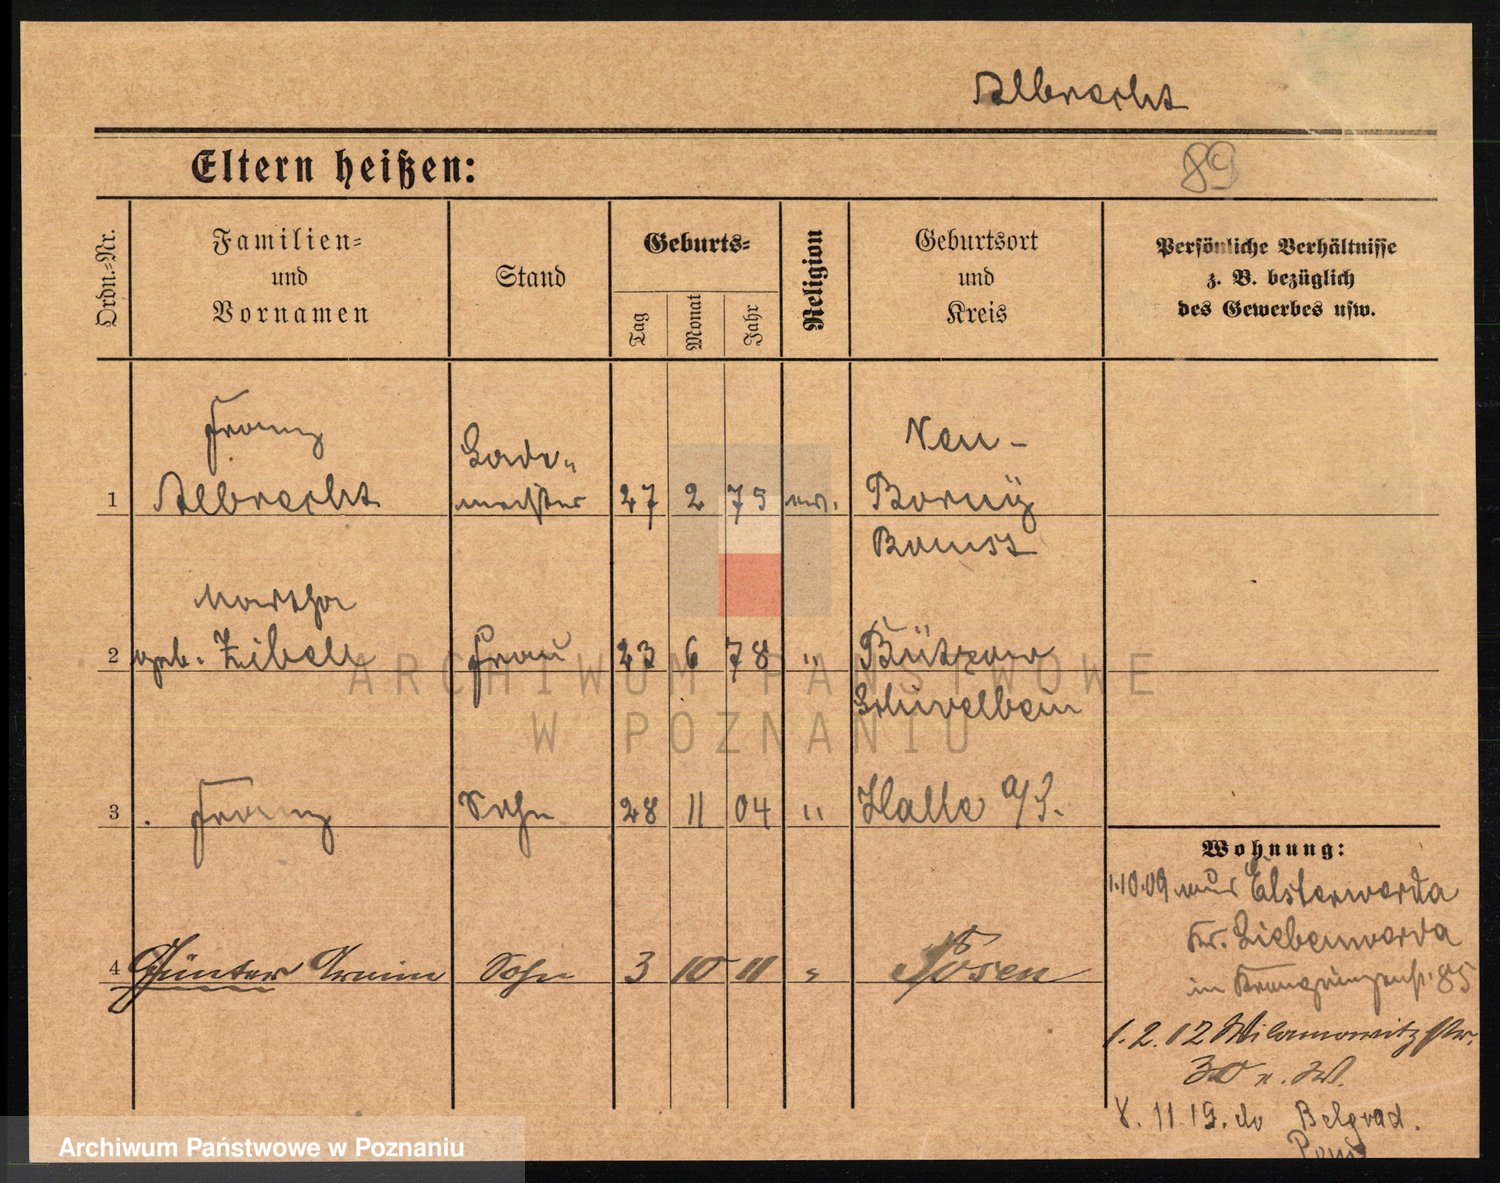 Albrecht
Eltern heißen:
89
Ordn.-Nr.
Familien-
und
Vornamen
Stand
Geburts-
Tag
Monat
Jahr
Religion
Geburtsort
und
Kreis
Persönliche Verhältnisse
z. B. bezüglich
des Gewerbes usw.
Franz
Lade-
Neu-
1 Albrecht meister 27 2 75 ev. Boruÿ
Bomst
Martha
2 geb. Zibell Frau 23 6 78 " Bützow
Schivelbein
3 Franz Sohn 28 11 04 " Halle a/S.
Wohnung:
1.10.09 aus Elsterwerda
Kr. Liebenwerda
in Kronprinzenst. 85
4 Günter Erwin Sohn 3 10 11 " Posen
1.2.12 Wilamowitzstr.
30 n. W.
8.11.19. do Belgrad.
Pom
ARCHIWUM PAŃSTWOWE
W POZNANIU
Archiwum Państwowe w Poznaniu